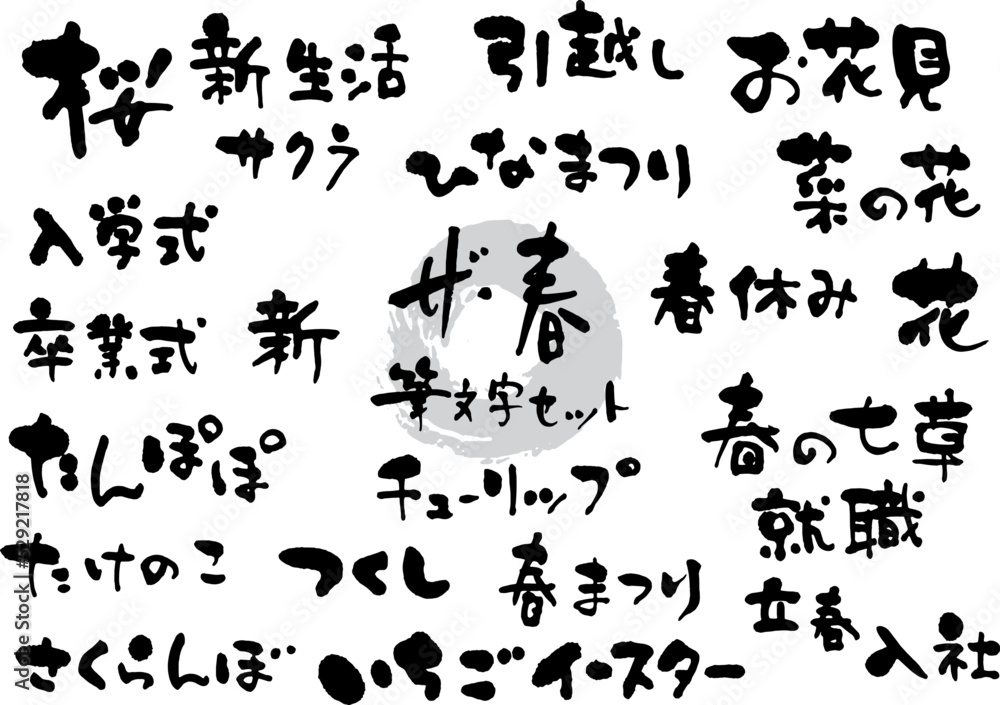 桜
新生活
引越し
お花見
サクラ
ひなまつり
菜の花
入学式
ザ・春
春休み
花
卒業式
新
筆文字セット
春の七草
たんぽぽ
チューリップ
就職
たけのこ
つくし
春まつり
立春
入社
さくらんぼ
いちご
イースター
Adobe Stock | #529217818